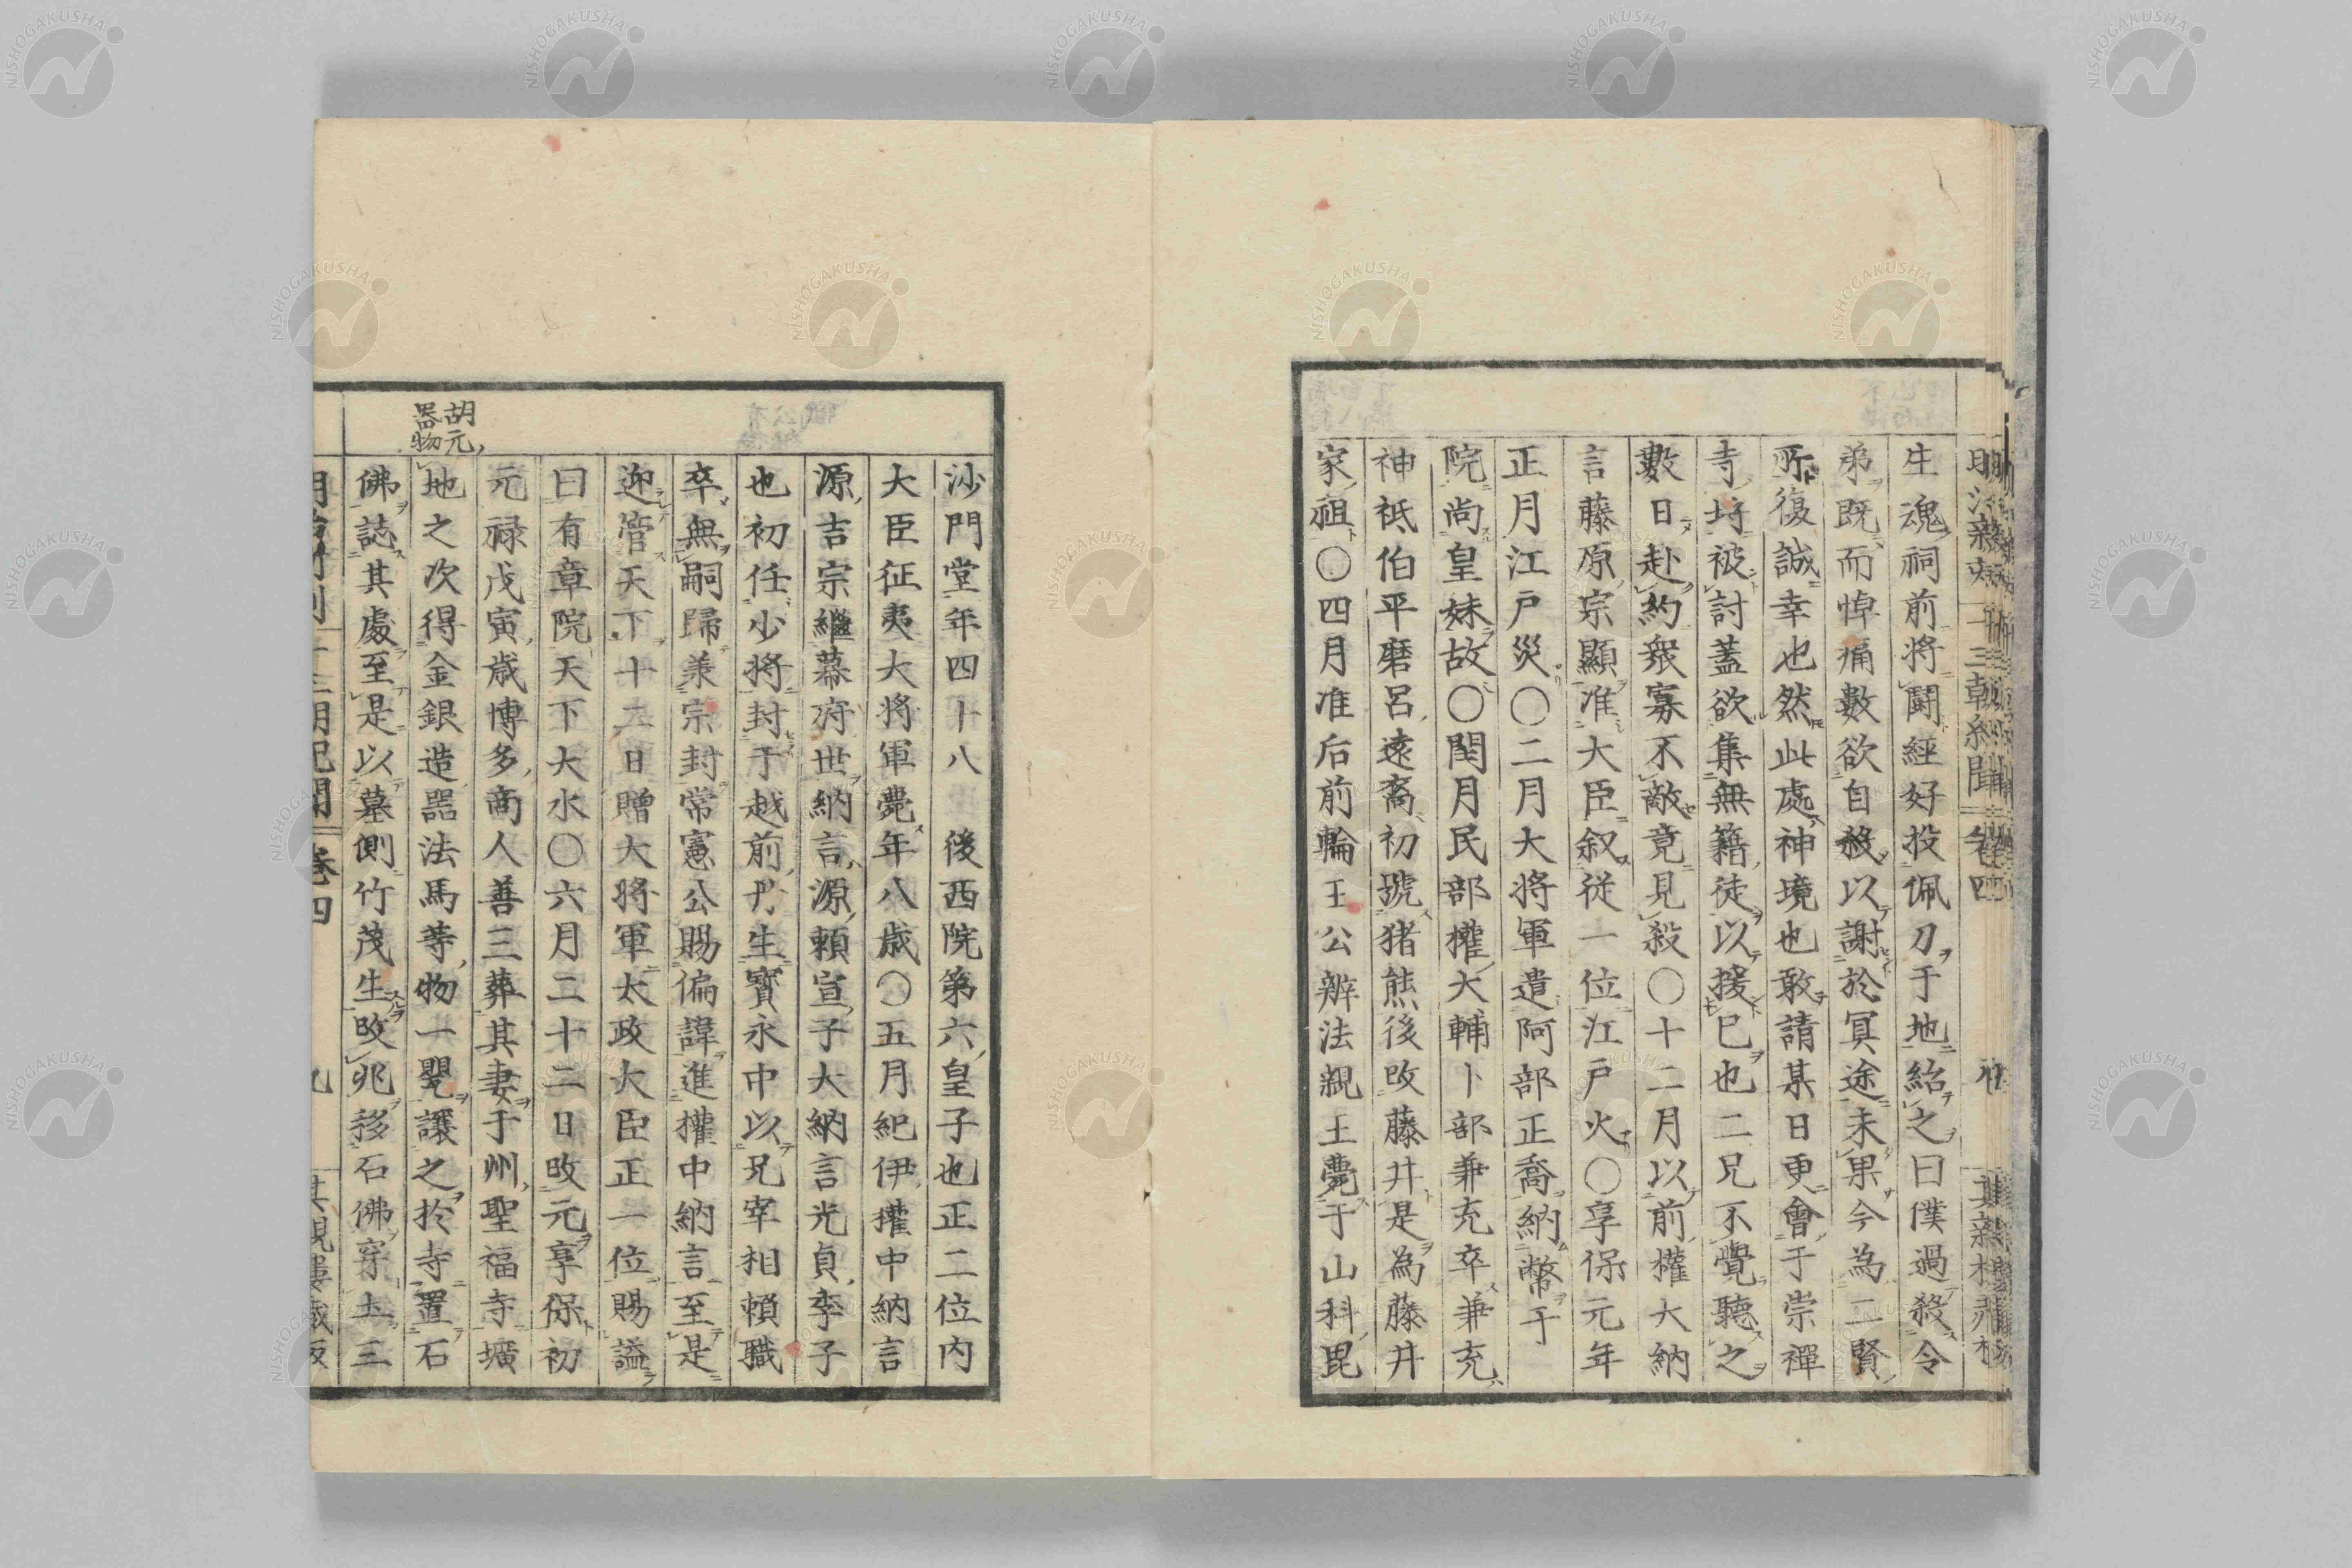 生魂祠前將鬪經好投佩刀于地紿之曰僕過殺令
弟既而悼痛數欲自殺以謝於冥途未果今為二賢
所復誠幸也然此處神境也敢請某日更會于崇禪
寺塲被討蓋欲集無籍徒以援已也二兄不覺聽之
數日赴約衆寡不敵竟見殺〇十二月以前權大納
言藤原宗顯准大臣叙従一位江戸火〇享保元年
正月江戸災〇二月大将軍遣阿部正喬納幣于
院尚皇妹故〇閏月民部權大輔卜部兼充卒兼充
神祇伯平磨呂遠裔初號猪熊後改藤井是為藤井
家祖〇四月准后前輪王公辨法親王薨于山科毘
沙門堂年四十八後西院第六皇子也正二位内
大臣征夷大将軍薨年八歳〇五月紀伊權中納言
源吉宗繼幕府世納言源頼宣子大納言光貞季子
也初任少将封于越前丹生寳永中以兄宰相頼職
卒無嗣歸兼宗封常憲公賜偏諱進權中納言至是
迎管天下十二日贈大将軍太政大臣正一位賜謚
曰有章院天下大水〇六月二十二日改元享保初
元禄戊寅歳博多商人善三葬其妻于州聖福寺壙
地之次得金銀造噐法馬等物一甖讓之於寺置石
佛誌其處至是以墓側竹茂生改兆移石佛穿土三
胡元
器物
卷四